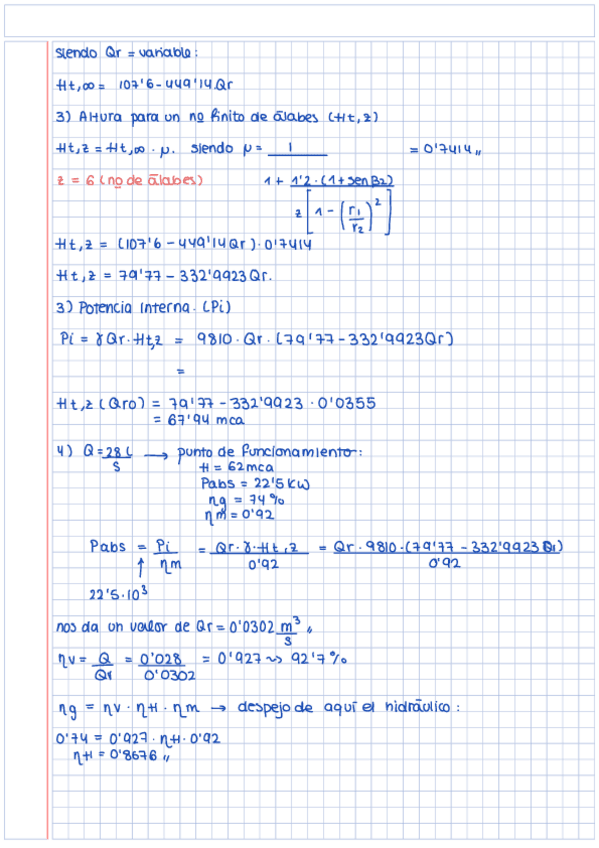 siendo Qr = variable:
Ht,∞ = 107'6 - 449'14.Qr
3) Altura para un nº finito de álabes (Ht,z)
Ht,z = Ht,∞ · μ. siendo μ = 1 / (1 + 1'2·(1+senβ2) / z[1 - (r1/r2)²]) = 0'7414,,
z = 6 (nº de álabes)
Ht,z = (107'6 - 449'14Qr)·0'7414
Ht,z = 79'77 - 332'9923Qr.
3) Potencia Interna. (Pi)
Pi = γQr·Ht,z = 9810·Qr·(79'77 - 332'9923Qr)
=
Ht,z (Qro) = 79'77 - 332'9923·0'0355
= 67'94 mca
4) Q = 28 l/s → punto de funcionamiento:
H = 62mca
Pabs = 22'5 kW
ηg = 74%
ηm = 0'92
Pabs = Pi/ηm = Qr·γ·Ht,z / 0'92 = Qr·9810·(79'77 - 332'9923 Q1) / 0'92
↑
22'5·10³
nos da un valor de Qr = 0'0302 m³/s ,,
ηv = Q/Qr = 0'028/0'0302 = 0'927 ⇝ 92'7%
ηg = ηv · ηH · ηm → despejo de aquí el hidráulico:
0'74 = 0'927·ηH·0'92
ηH = 0'8676,,